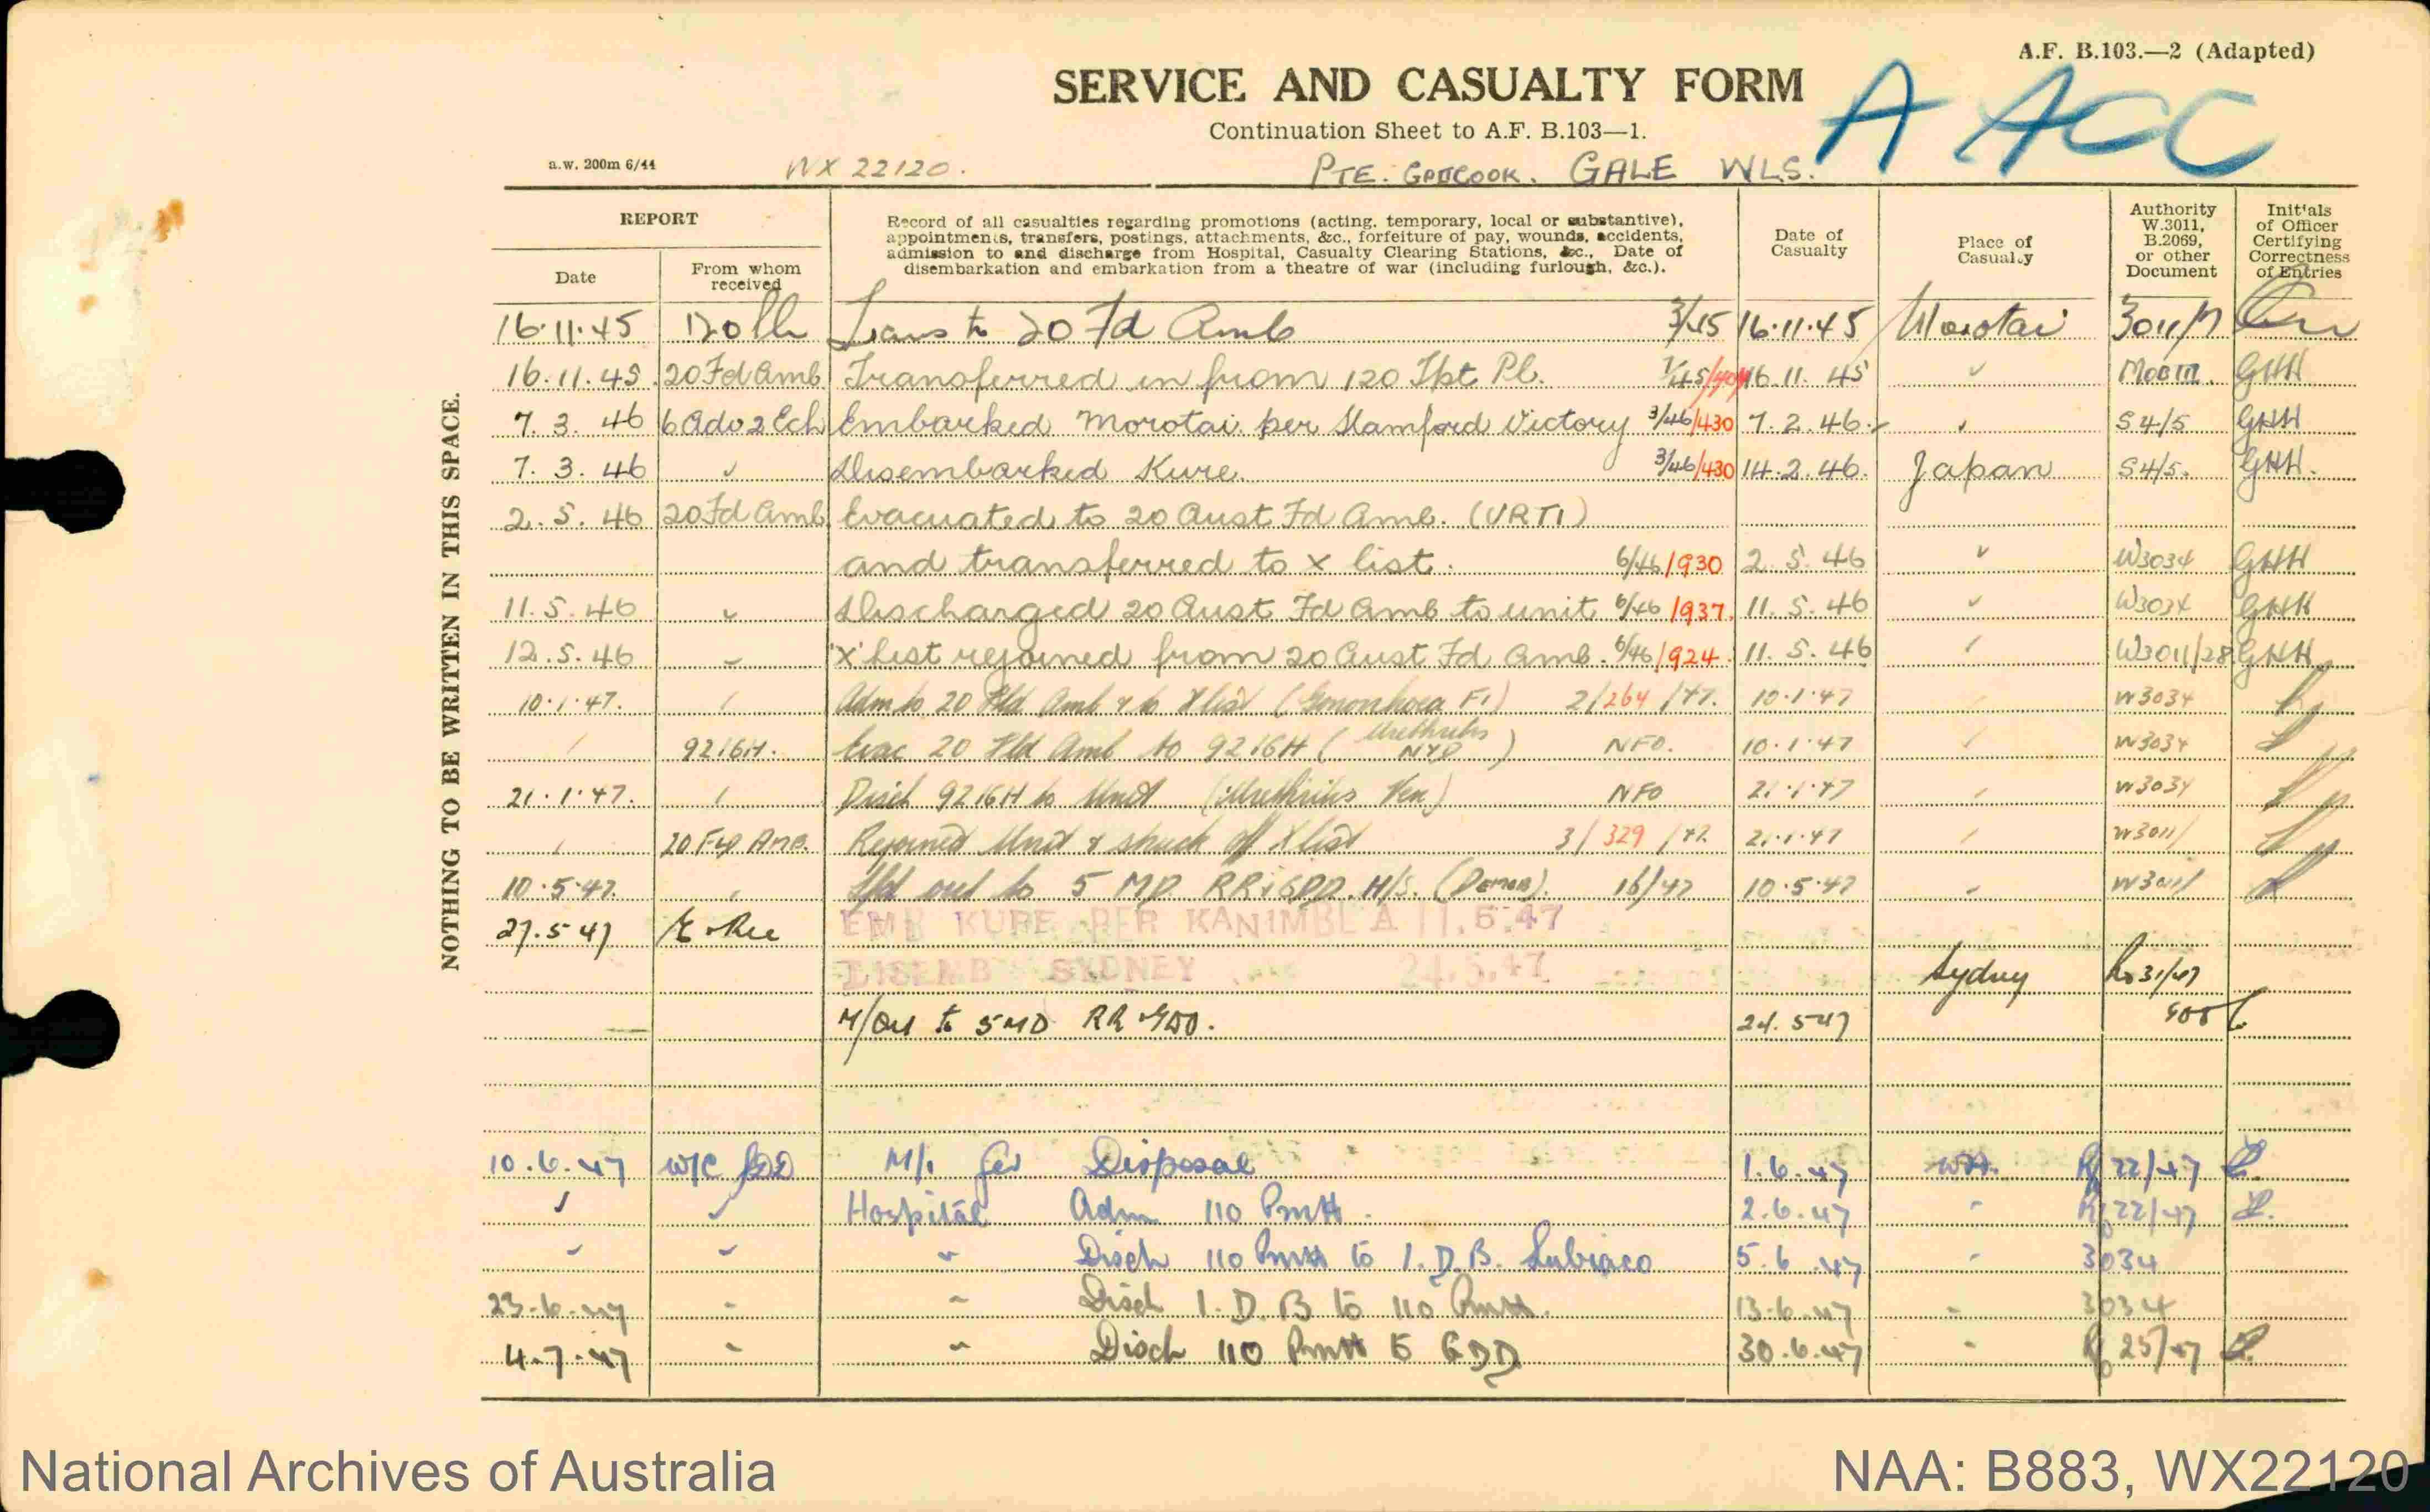 A.F. B.103.—2 (Adapted)
SERVICE AND CASUALTY FORM
A ACC
Continuation Sheet to A.F. B.103—1.
a.w. 200m 6/44 WX 22120. PTE. GALE W.L.S.
NOTHING TO BE WRITTEN IN THIS SPACE.
REPORT
Date
From whom received
Record of all casualties regarding promotions (acting, temporary, local or substantive),
appointments, transfers, postings, attachments, &c., forfeiture of pay, wounds, accidents,
admission to and discharge from Hospital, Casualty Clearing Stations, &c., Date of
disembarkation and embarkation from a theatre of war (including furlough, &c.).
Date of Casualty
Place of Casualty
Authority W.3011, B.2069, or other Document
Init'als of Officer Certifying Correctness of Entries
16.11.45 Trans to 20 Fd Amb 3/45 16.11.45 Morotai 3011/17
16.11.45 20 Fd Amb Transferred in from 120 Tpt Pl. 16.11.45 ✓ GHH
7.3.46 6 Adv 2 Ech Embarked Morotai per Stamford Victory 3/46/430 7.2.46 ✓ S4/5 GHH
7.3.46 ✓ Disembarked Kure. 3/46/430 14.2.46. Japan S4/5. GHH.
2.5.46 20 Fd Amb Evacuated to 20 Aust Fd Amb. (URTI)
and transferred to X list. 6/46/930 2.5.46 ✓ W3034 GHH
11.5.46 ✓ Discharged 20 Aust Fd Amb to unit 6/46/937. 11.5.46 ✓ W3034 GHH
12.5.46 ✓ 'X' list rejoined from 20 Aust Fd Amb. 6/46/924. 11.5.46 W3011/28 GHH
10.1.47. Adm to 20 Fld Amb & to X list (Gonorrhoea F1) 2/264/47. 10.1.47 W3034
92 IGH. Evac 20 Fld Amb to 92 IGH (Urethritis NYD) NFO. 10.1.47 W3034
21.1.47. Disch 92 IGH to Unit (Urethritis Ven) NFO 21.1.47 W3034
20 Fld Amb. Rejoined Unit & struck off X list 3/329/47 21.1.47 W3011/
10.5.47. out to 5 MD. RR & GDD. H/S. (Demob). 16/47 10.5.47 W3011/
27.5.47 EMB KURE PER KANIMBLA 11.5.47
DISEMB SYDNEY 24.5.47 Sydney Ro 31/47
M/Out to 5MD RR & GDD. 24.5.47
10.6.47 W/C GDD M/I for Disposal 1.6.47 WA. Ro 22/47
✓ ✓ Hospital Adm 110 PMH. 2.6.47 " Ro 22/47
" Disch 110 PMH to I.D.B. Subiaco 5.6.47 3034
23.6.47 " Disch I.D.B to 110 PMH. 13.6.47 3034
4.7.47 " Disch 110 PMH to GDD 30.6.47 Ro 25/47
National Archives of Australia
NAA: B883, WX22120